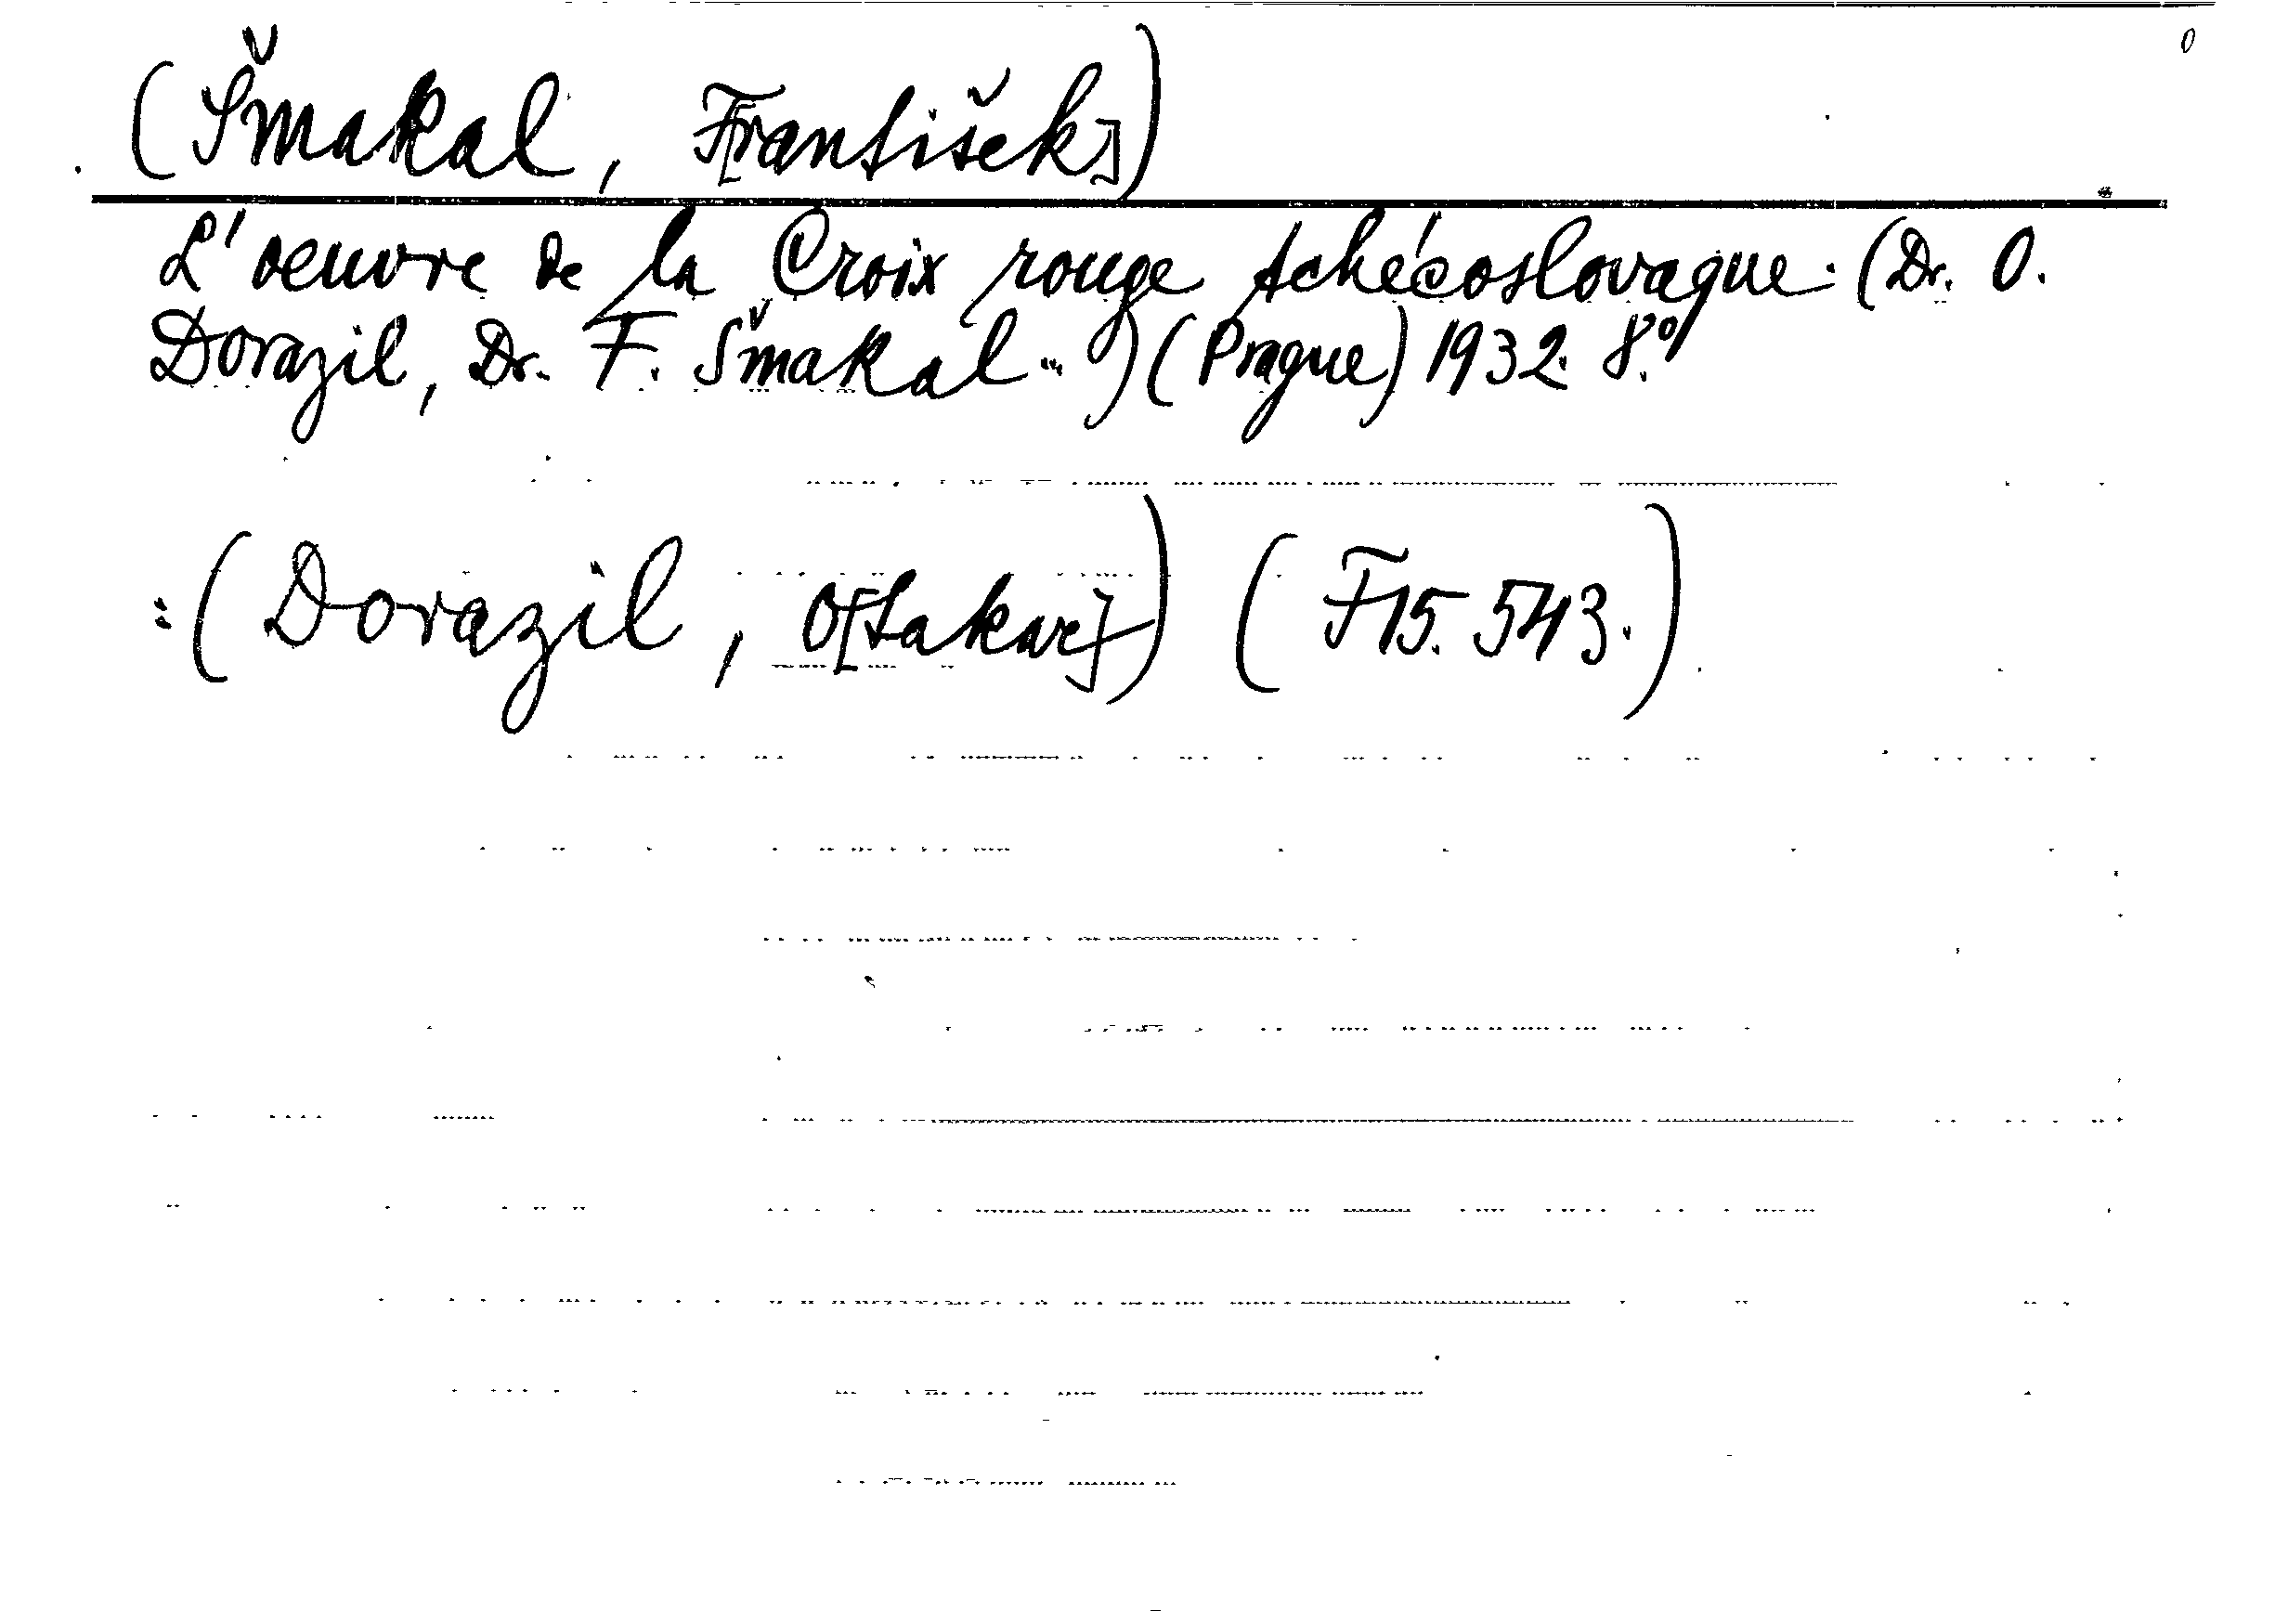 (Šmakal, F[rantišek])
L'oeuvre de la Croix rouge tchécoslovaque. (Dr. O.
Dorazil, Dr. F. Šmakal...) (Prague) 1932. 8.°
: (Dorazil, O[takar]) (F 15.543.)